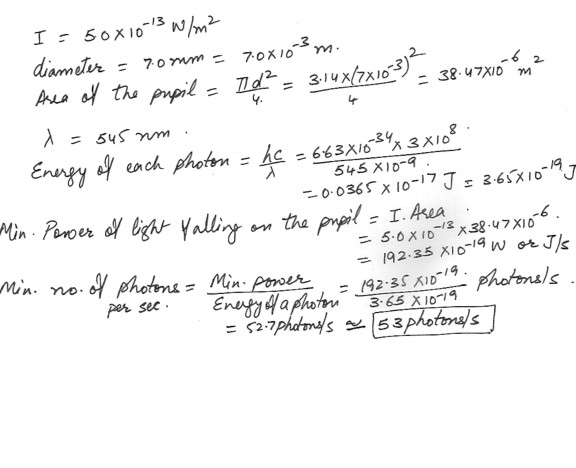 I = 5.0×10⁻¹³ W/m²
diameter = 7.0 mm = 7.0×10⁻³ m.
Area of the pupil = πd²/4. = 3.14×(7×10⁻³)²/4 = 38.47×10⁻⁶ m²
λ = 545 nm.
Energy of each photon = hc/λ = 6.63×10⁻³⁴ × 3×10⁸/545×10⁻⁹.
= 0.0365 × 10⁻¹⁷ J = 3.65×10⁻¹⁹ J
Min. Power of light falling on the pupil = I. Area.
= 5.0×10⁻¹³ × 38.47×10⁻⁶.
= 192.35 ×10⁻¹⁹ W or J/s
Min. no. of photons per sec. = Min. power/Energy of a photon = 192.35 ×10⁻¹⁹./3.65 ×10⁻¹⁹ photons/s.
= 52.7 photons/s ≃ 53 photons/s